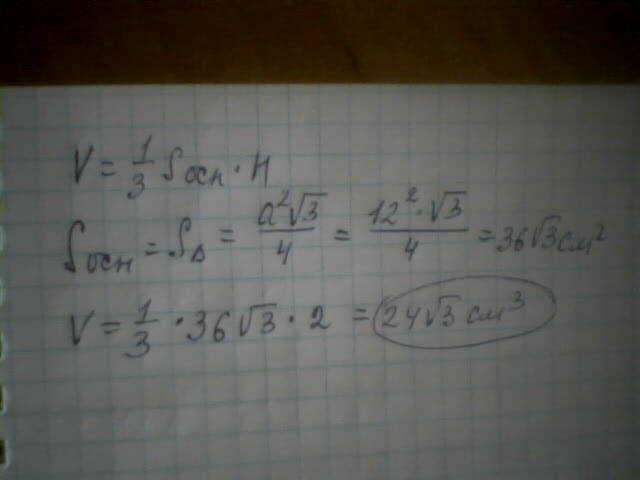 V = 1/3 Sосн · H
Sосн = S△ = a²√3/4 = 12²·√3/4 = 36√3 см²
V = 1/3 · 36√3 · 2 = 24√3 см³